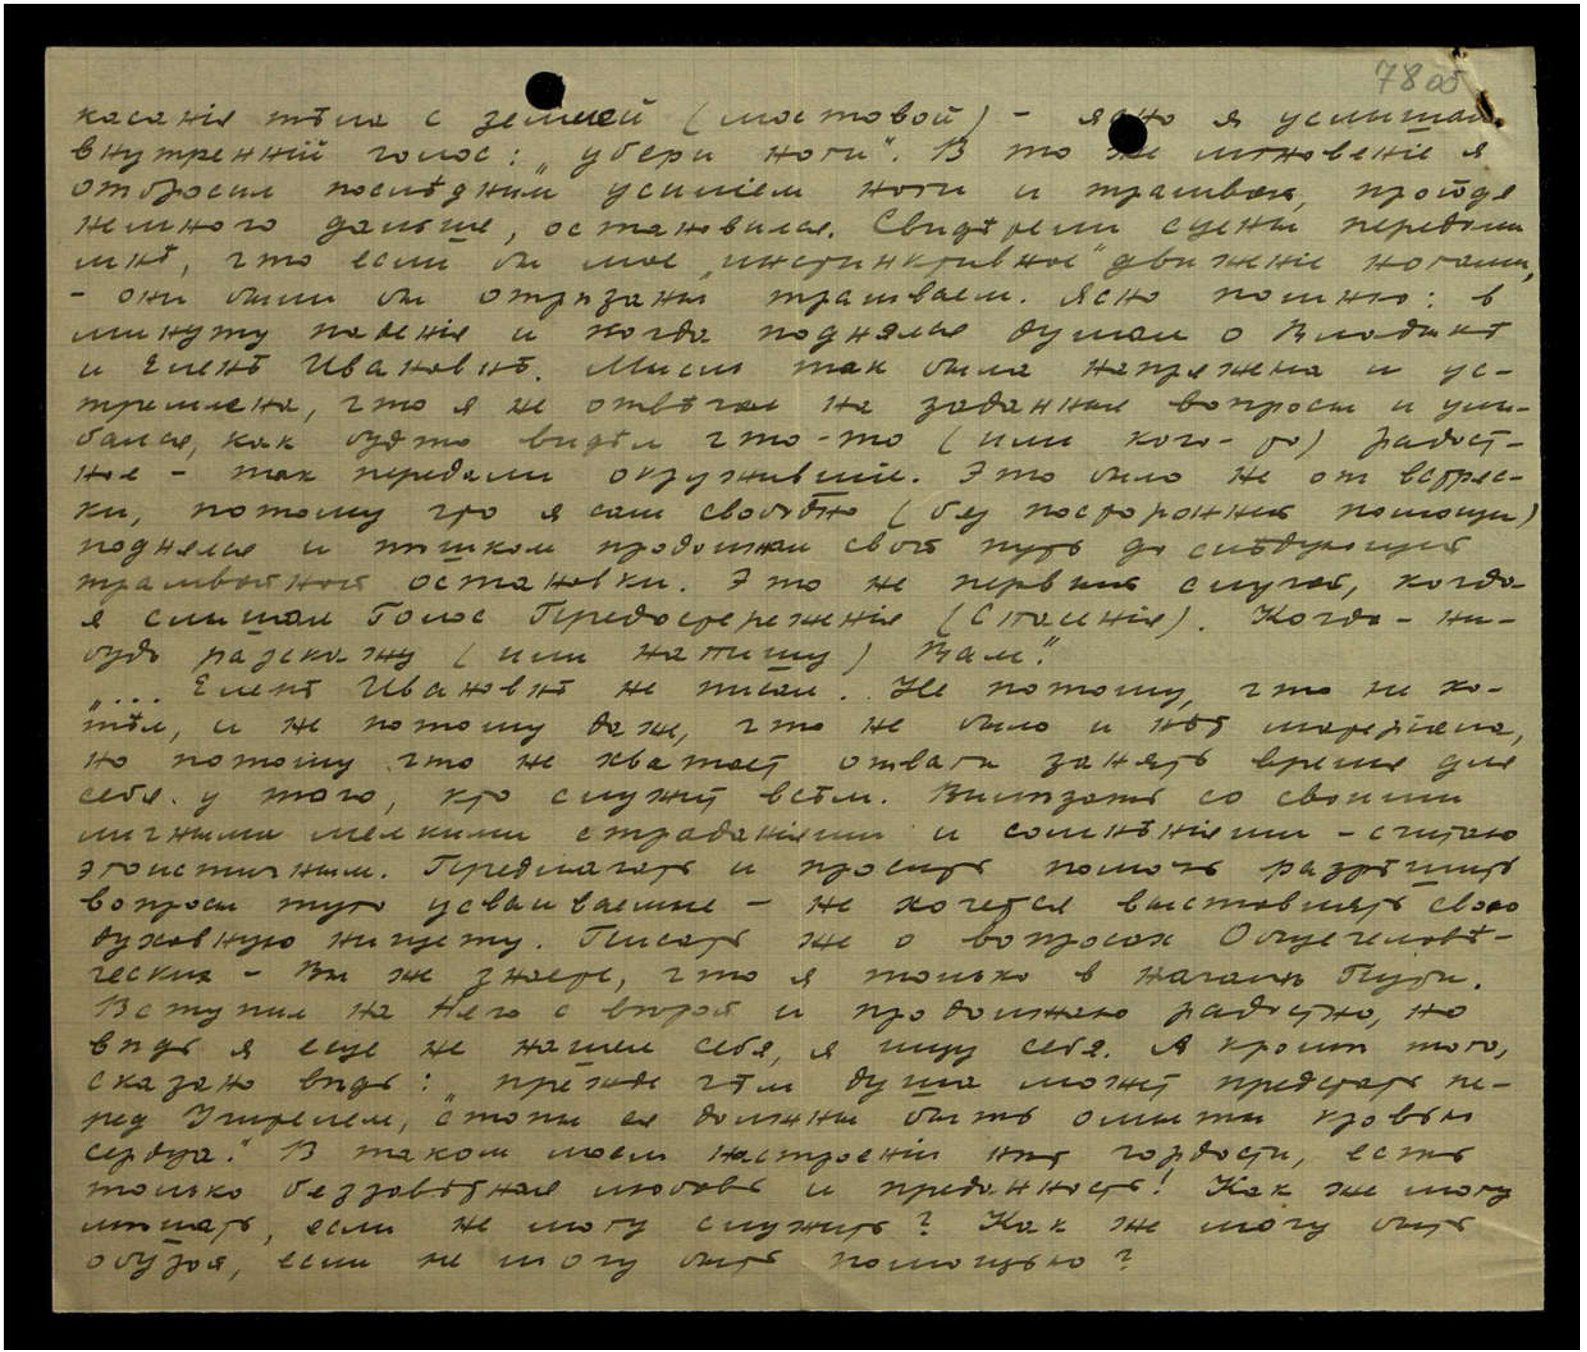 78 об
касанія тѣла с землей (мостовой) - ясно я услышал
внутренній голос: „убери ноги". В то же мгновеніе я
отбросил послѣдним усиліем ноги и трамвай, пройдя
немного дальше, остановился. Свидѣтели сцены передали
мнѣ, что если бы мое „инстинктивное" движеніе ногами,
- они были бы отрѣзаны трамваем. Ясно помню: в
минуту паденія и когда поднялся думал о Владыкѣ
и Еленѣ Ивановнѣ. Мысль так была напряжена и ус-
тремлена, что я не отвѣчал на заданные вопросы и улы-
бался, как будто видѣл что-то (или кого-то) радост-
ное - так передали окружившіе. Это было не от встряс-
ки, потому что я сам свободно (без посторонней помощи)
поднялся и пѣшком продолжал свой путь до слѣдующей
трамвайной остановки. Это не первый случай, когда
я слышал Голос Предостереженія (Спасенія). Когда-ни-
будь разскажу (или напишу) Вам."
„... Еленѣ Ивановнѣ не писал. Не потому, что не хо-
тѣл, и не потому даже, что не было и нѣт матеріала,
но потому что не хватает отваги занять время для
себя у того, кто служит всѣм. Вылѣзать со своими
личными мелкими страданіями и сомнѣніями - считаю
эгоистичным. Предлагать и просить помочь разрѣшить
вопросы туго усваиваемые - не хочется выставлять свою
духовную нищету. Писать же о вопросах Общечеловѣ-
ческих - Вы же знаете, что я только в началѣ Пути.
Вступил на Него с вѣрой и продолжаю радостно, но
вѣдь я еще не нашел себя, я ищу себя. А кромѣ того,
сказано вѣдь: „прежде чѣм душа может предстать пе-
ред Учителем, стопы ея должны быть омыты кровью
сердца." В таком моем настроеніи нѣт гордости, есть
только беззавѣтная любовь и преданность! Как же могу
мѣшать, если не могу служить? Как же могу быть
обузой, если не могу быть помощью?